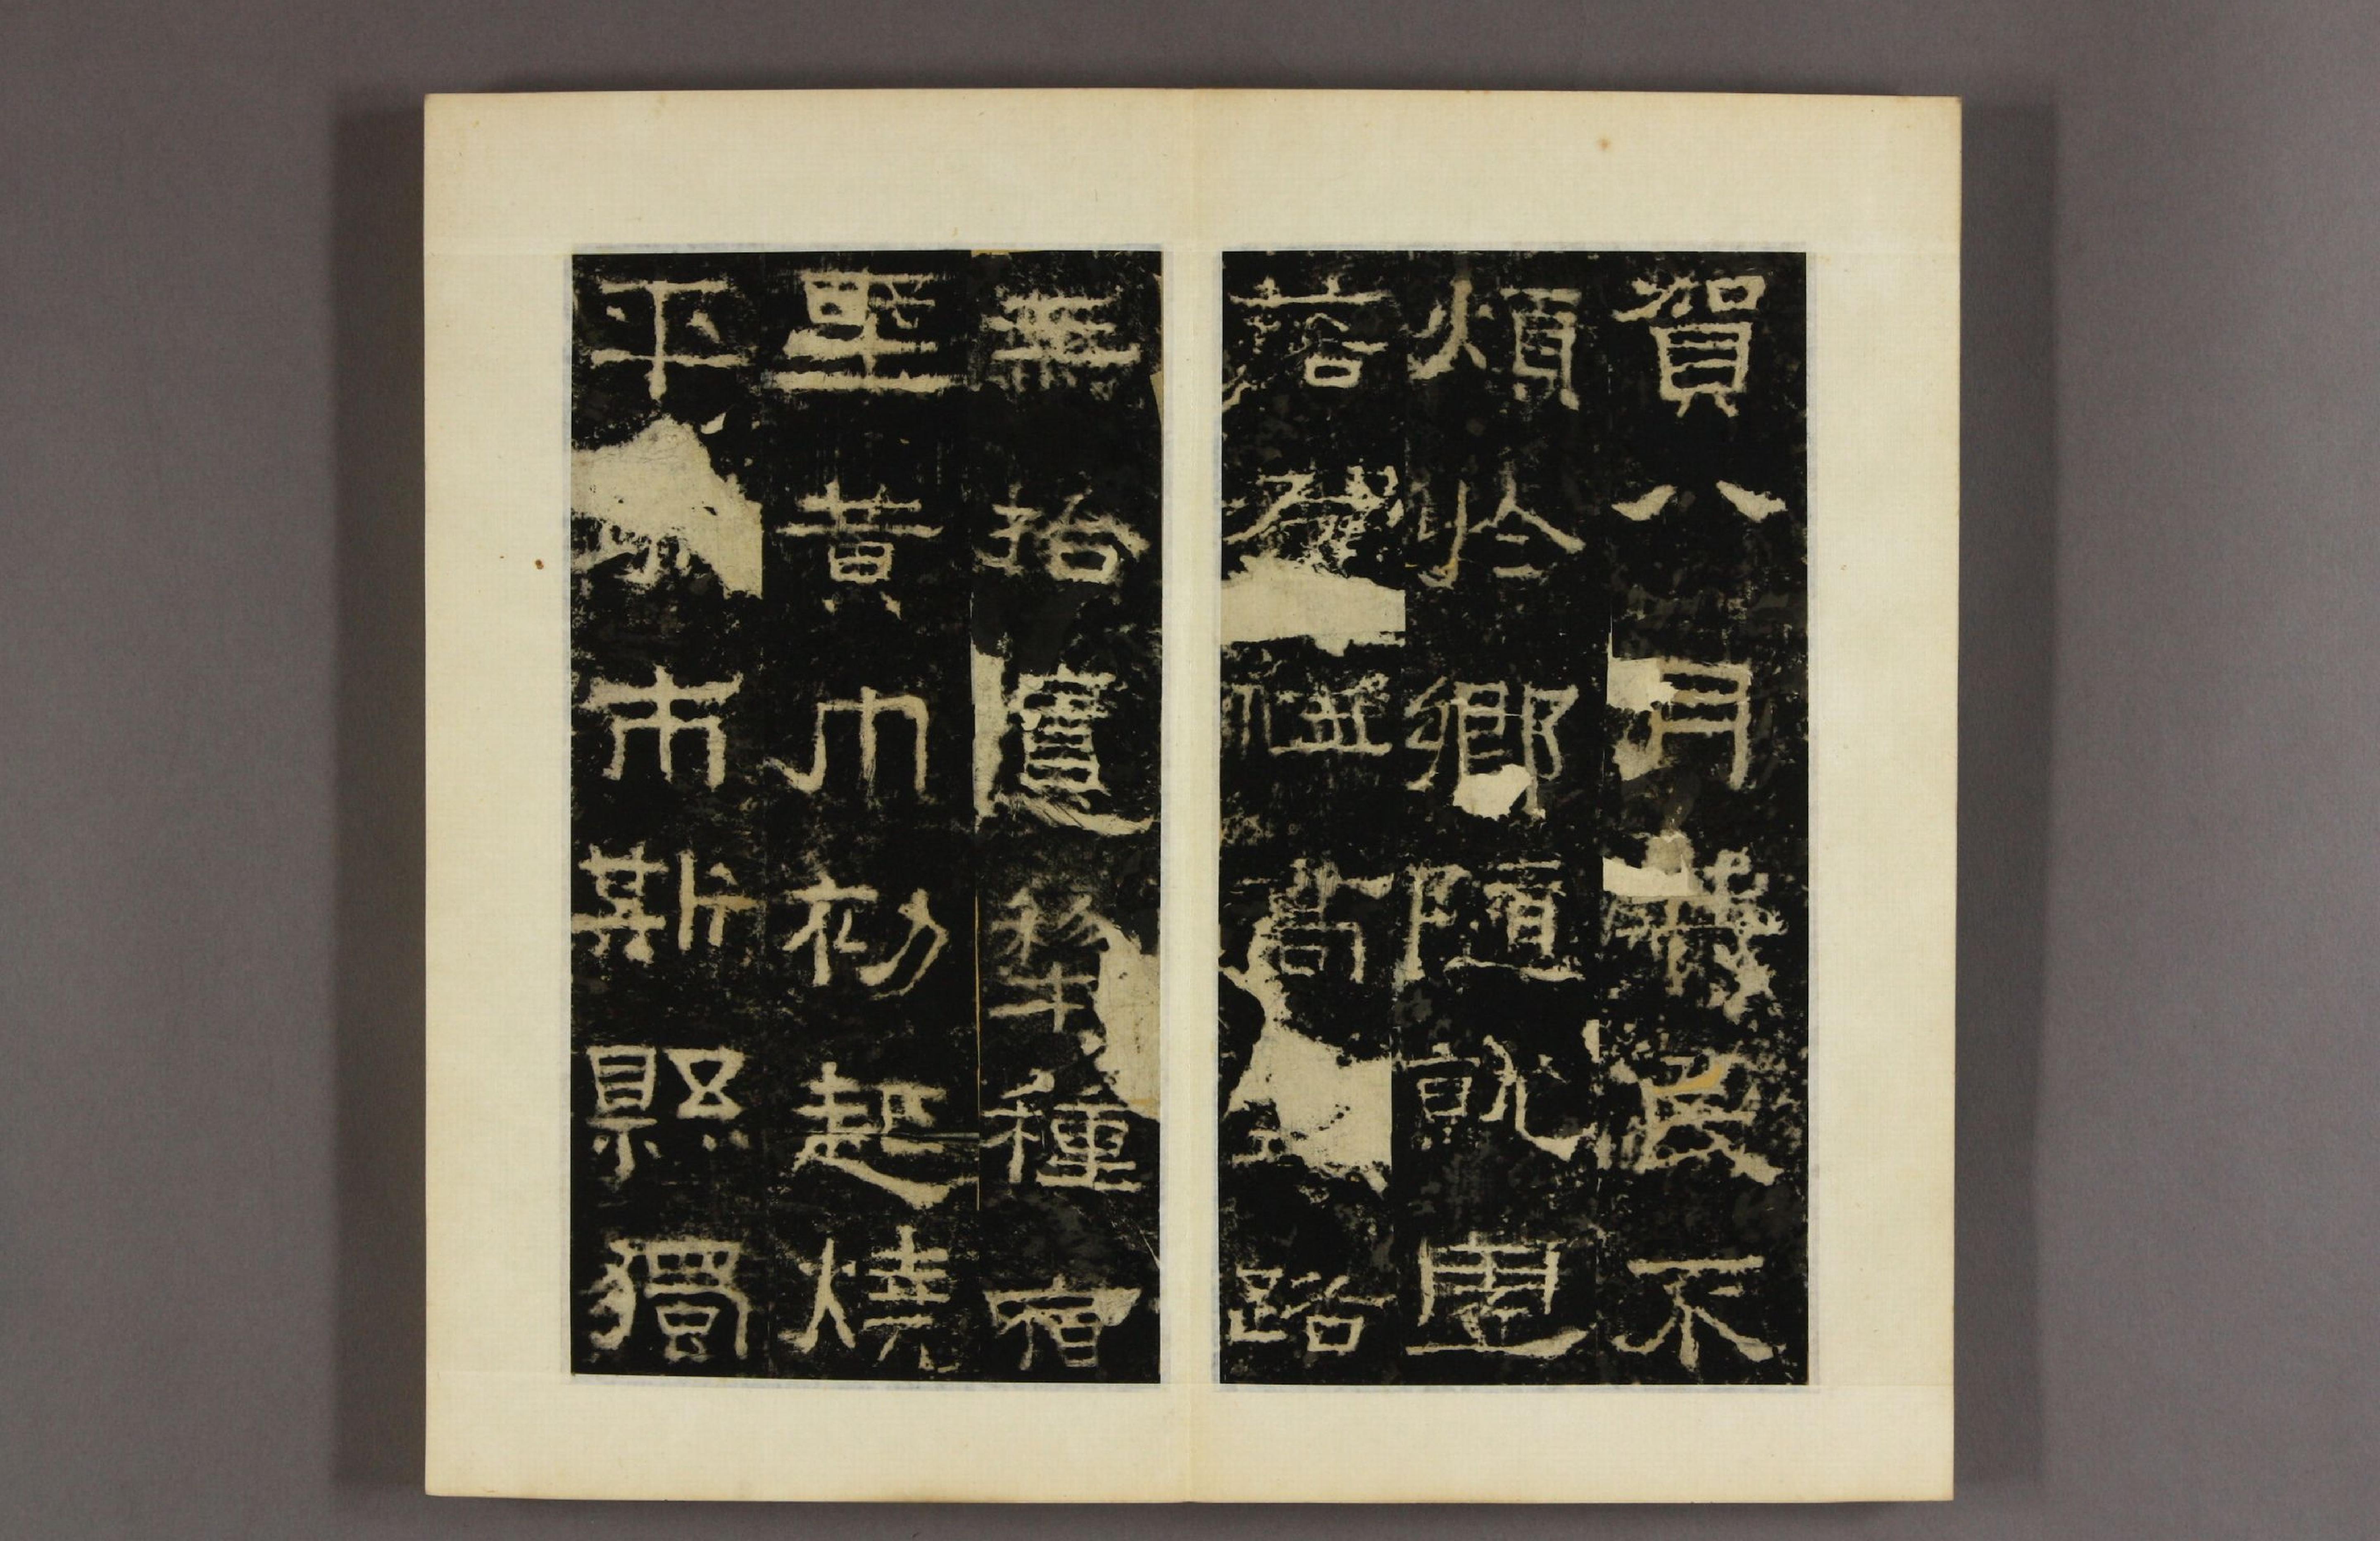 賀八月筭民不
煩於鄉隨就虛
落存恤高路
無拾遺犁種宿
野黃巾初起燒
平市斯縣獨